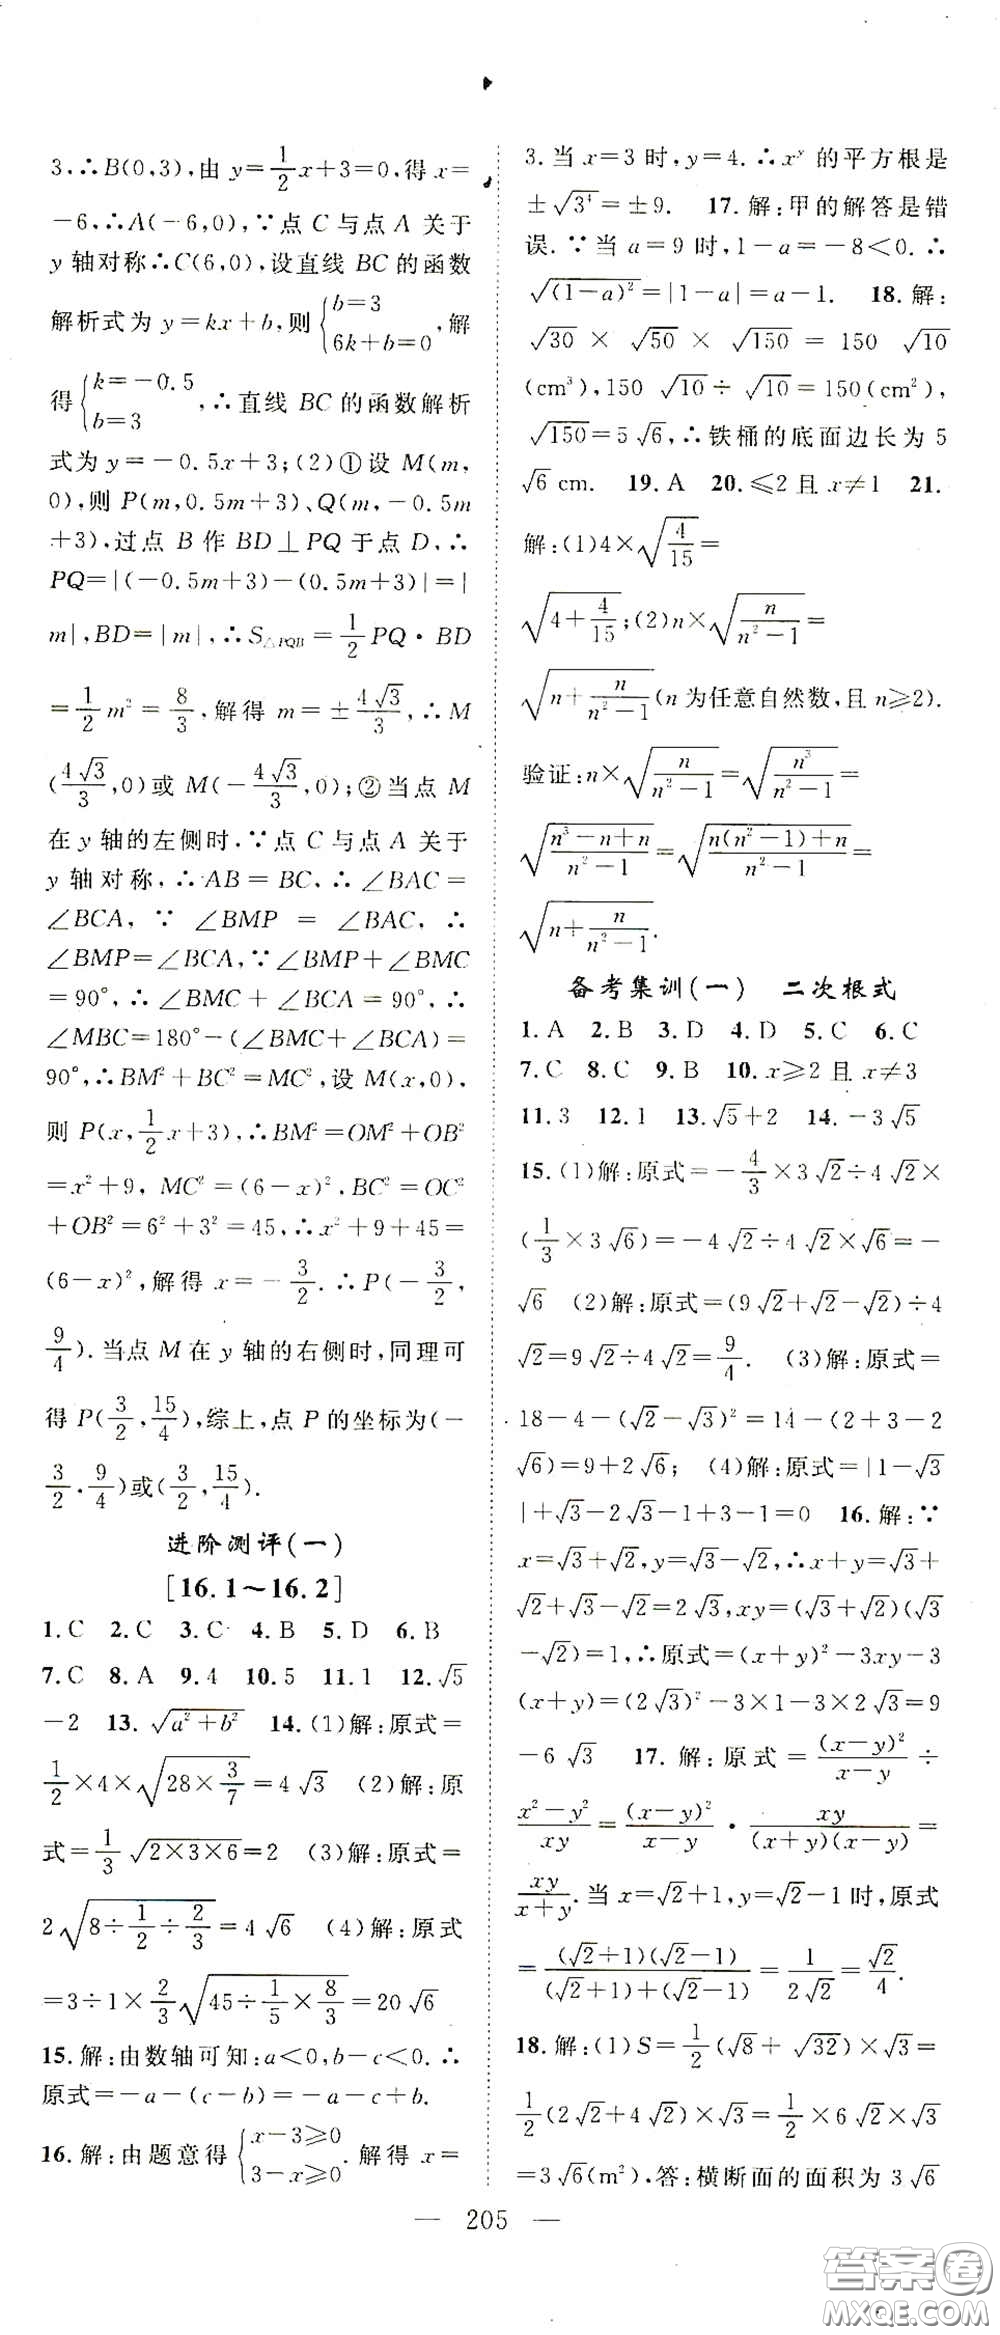 3.∴B(0,3),由 y=1/2x+3=0,得 x=
-6,∴A(-6,0),∵点 C 与点 A 关于
y 轴对称∴C(6,0),设直线 BC 的函数
解析式为 y=kx+b,则{b=3 6k+b=0,解
得{k=-0.5 b=3,∴直线 BC 的函数解析
式为 y=-0.5x+3;(2)①设 M(m,
0),则 P(m,0.5m+3)、Q(m,-0.5m
+3),过点 B 作 BD⊥PQ 于点 D,∴
PQ=|(-0.5m+3)-(0.5m+3)|=|
m|,BD=|m|,∴S△PQB=1/2PQ·BD
=1/2m²=8/3,解得 m=±4√3/3,∴M
(4√3/3,0)或 M(-4√3/3,0);②当点 M
在 y 轴的左侧时,∵点 C 与点 A 关于
y 轴对称,∴AB=BC,∴∠BAC=
∠BCA,∵∠BMP=∠BAC,∴
∠BMP=∠BCA,∵∠BMP+∠BMC
=90°,∴∠BMC+∠BCA=90°,∴
∠MBC=180°-(∠BMC+∠BCA)=
90°,∴BM²+BC²=MC²,设 M(x,0),
则 P(x,1/2x+3),∴BM²=OM²+OB²
=x²+9,MC²=(6-x)²,BC²=OC²
+OB²=6²+3²=45,∴x²+9+45=
(6-x)²,解得 x=-3/2.∴P(-3/2,
9/4).当点 M 在 y 轴的右侧时,同理可
得 P(3/2,15/4),综上,点 P 的坐标为(-
3/2,9/4)或(3/2,15/4).
进阶测评(一)
[16.1～16.2]
1.C 2.C 3.C 4.B 5.D 6.B
7.C 8.A 9.4 10.5 11.1 12.√5
-2 13.√(a²+b²) 14.(1)解:原式=
1/2×4×√(28×3/7)=4√3 (2)解:原
式=1/3√(2×3×6)=2 (3)解:原式=
2√(8÷1/2÷2/3)=4√6 (4)解:原式
=3÷1×2/3√(45÷1/5×8/3)=20√6
15.解:由数轴可知:a<0,b-c<0.∴
原式=-a-(c-b)=-a-c+b.
16.解:由题意得{x-3⩾0 3-x⩾0.解得 x=
3.当 x=3 时,y=4.∴xʸ 的平方根是
±√3⁴=±9. 17.解:甲的解答是错
误.∵当 a=9 时,1-a=-8<0.∴
√(1-a)²=|1-a|=a-1. 18.解:
√30×√50×√150=150√10
(cm³),150√10÷√10=150(cm²),
√150=5√6,∴铁桶的底面边长为 5
√6cm. 19.A 20.⩽2且 x≠1 21.
解:(1)4×√(4/15)=
√(4+4/15);(2)n×√(n/(n²-1))=
√(n+n/(n²-1))(n 为任意自然数,且 n⩾2).
验证:n×√(n/(n²-1))=√(n³/(n²-1))=
√((n³-n+n)/(n²-1))=√((n(n²-1)+n)/(n²-1))=
√(n+n/(n²-1)).
备考集训(一) 二次根式
1.A 2.B 3.D 4.D 5.C 6.C
7.C 8.C 9.B 10.x⩾2 且 x≠3
11.3 12.1 13.√5+2 14.-3√5
15.(1)解:原式=-4/3×3√2÷4√2×
(1/3×3√6)=-4√2÷4√2×√6=-
√6 (2)解:原式=(9√2+√2-√2)÷4
√2=9√2÷4√2=9/4. (3)解:原式=
18-4-(√2-√3)²=14-(2+3-2
√6)=9+2√6; (4)解:原式=|1-√3
|+√3-2√3-1+3-1=0 16.解:∵
x=√3+√2,y=√3-√2,∴x+y=√3
+√2+√3-√2=2√3,xy=(√3+√2)(√3
-√2)=1,∴原式=(x+y)²-3xy-3
(x+y)=(2√3)²-3×1-3×2√3=9
-6√3 17.解:原式=(x-y)²/(x-y)÷
(x²-y²)/xy=(x-y)²/(x-y)·xy/((x+y)(x-y))=
xy/(x+y).当 x=√2+1,y=√2-1时,原式
=(√2+1)(√2-1)/((√2+1)+(√2-1))=1/(2√2)=√2/4.
18.解:(1)S=1/2(√8+√32)×√3=
1/2(2√2+4√2)×√3=1/2×6√2×√3
=3√6(m²).答:横断面的面积为 3√6
— 205 —
答案卷
MXQE.COM